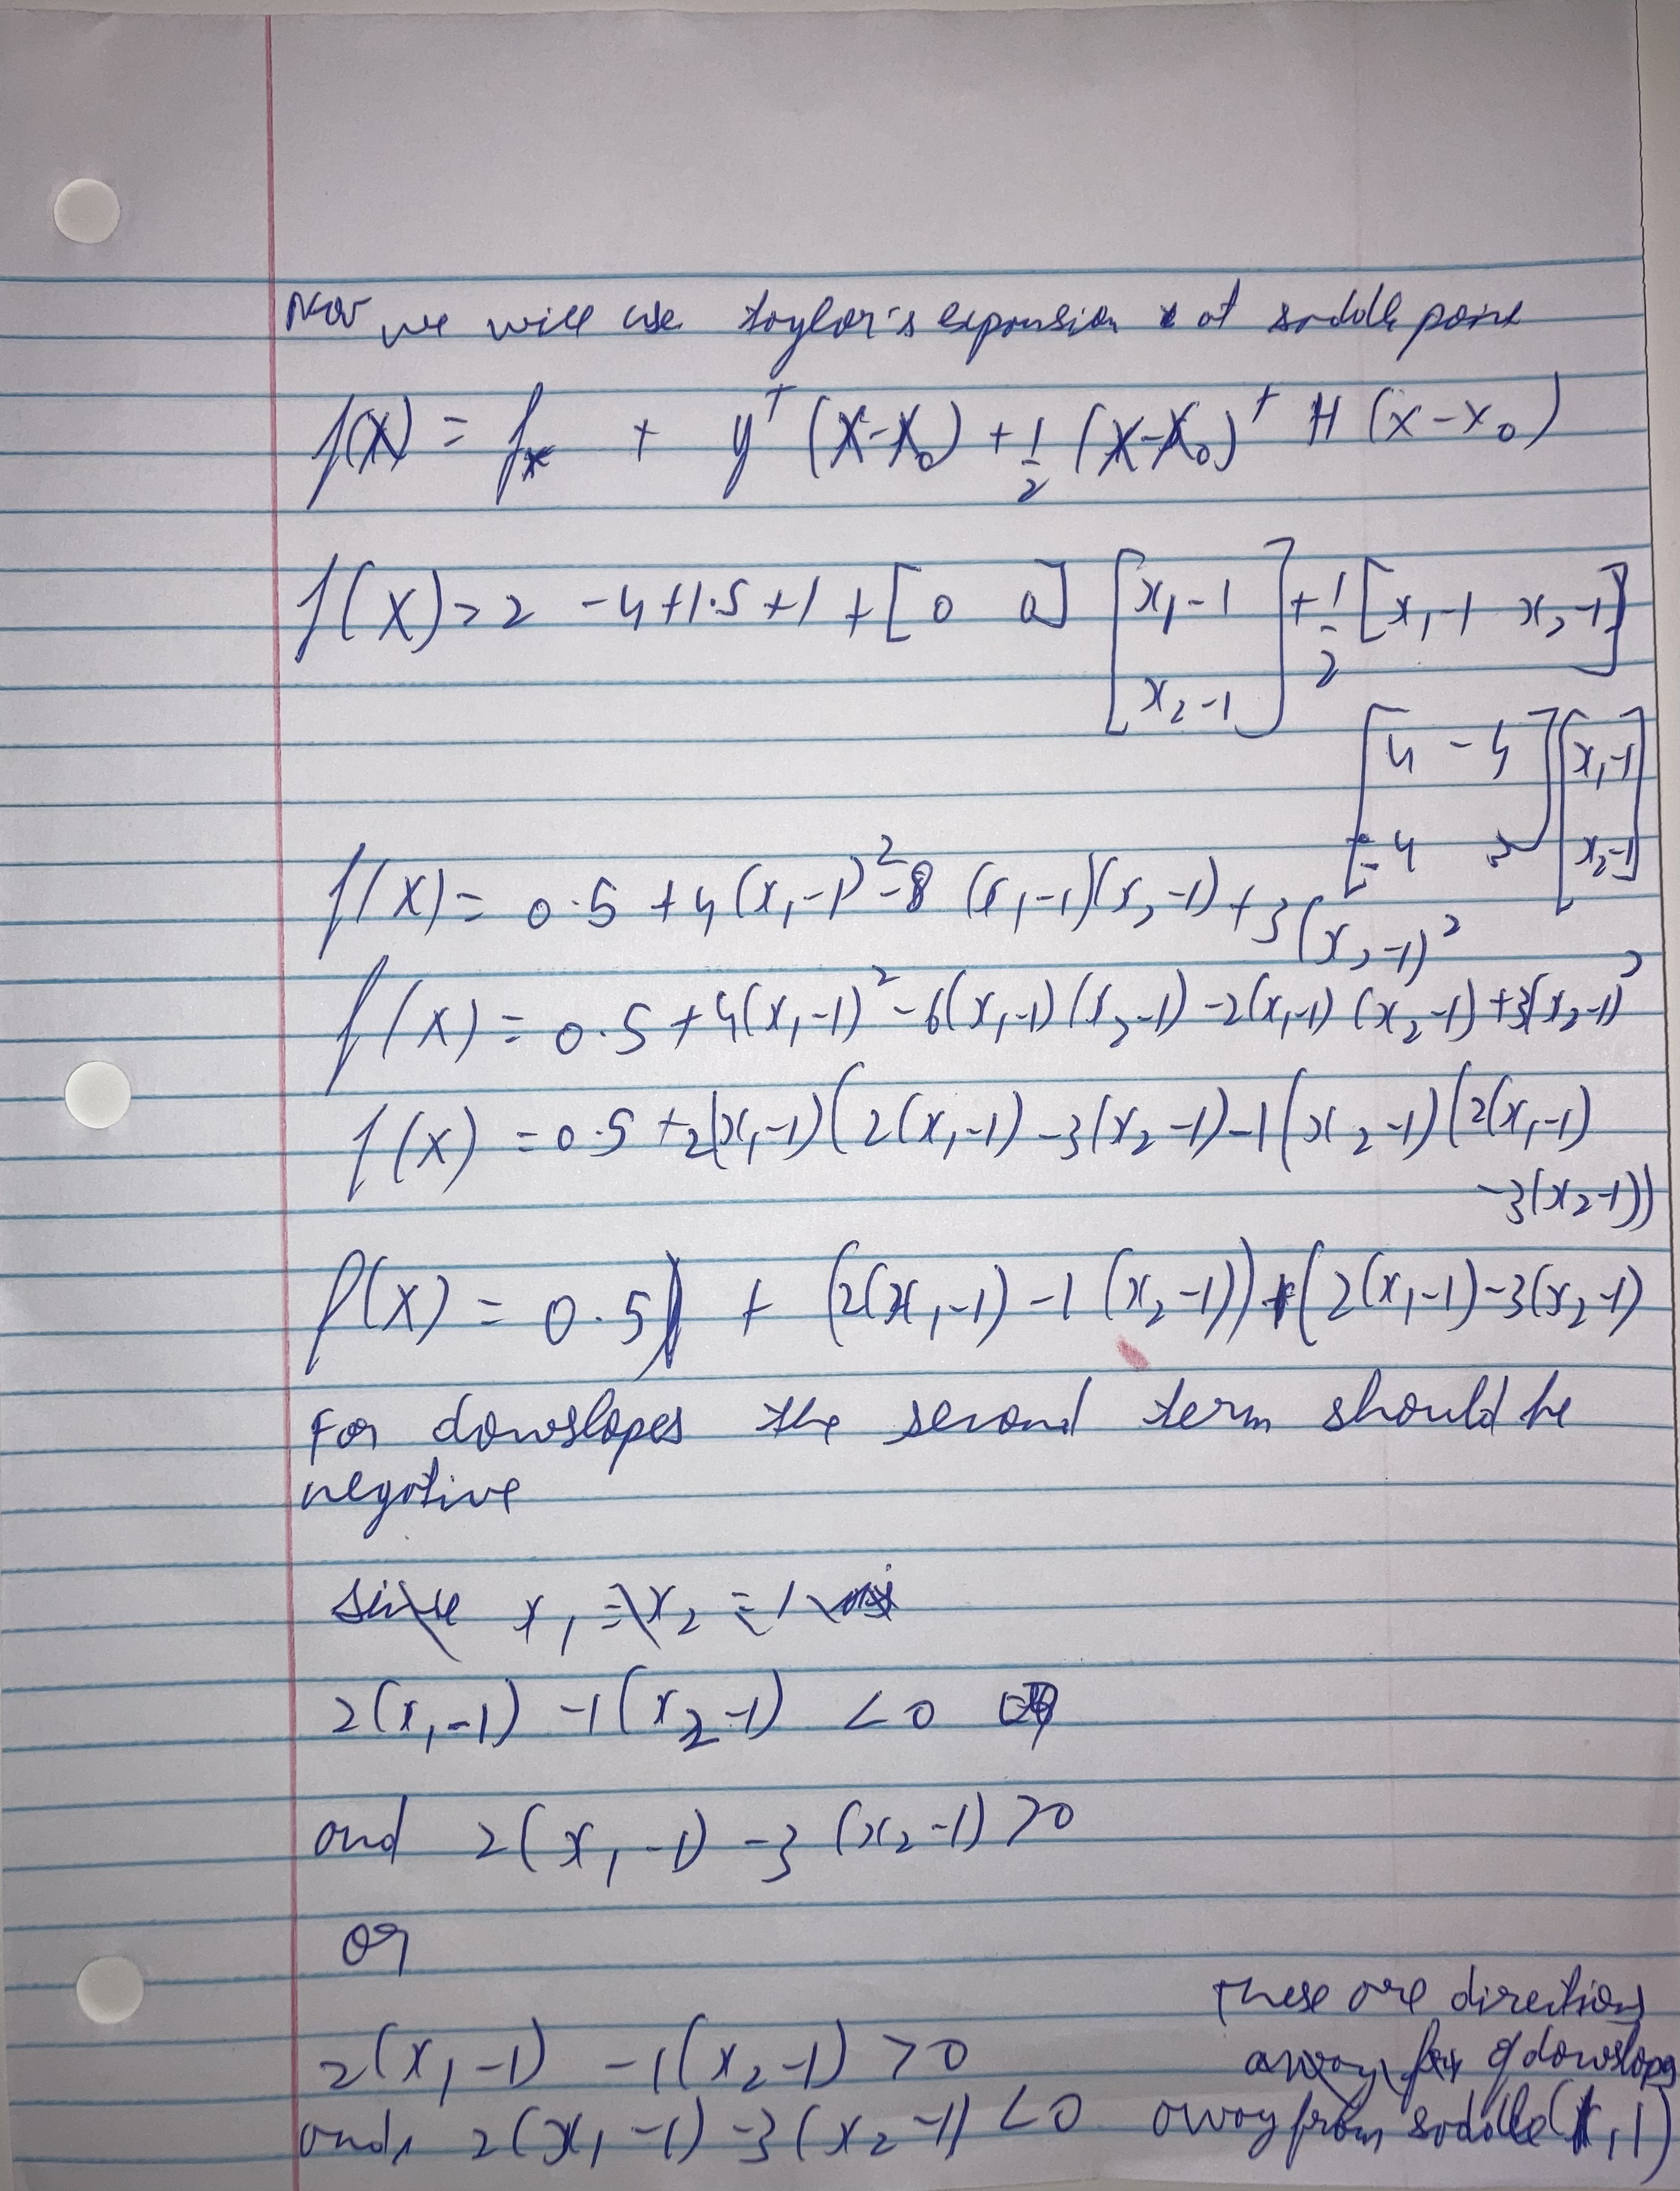 Now we will use taylor's expansion at saddle point
f(X) = fx + g^T (X-X₀) + 1/2 (X-X₀)^T H (x-x₀)
f(X) = 2 -4+1.5+1 + [0 0] [x₁-1 x₂-1] + 1/2 [x₁-1 x₂-1]
[4 -4 -4 3] [x₁-1 x₂-1]
f(X) = 0.5 + 4(x₁-1)² -8 (x₁-1)(x₂-1) + 3(x₂-1)²
f(X) = 0.5 + 4(x₁-1)² - 6(x₁-1)(x₂-1) - 2(x₁-1)(x₂-1) + 3(x₂-1)²
f(X) = 0.5 + 2(x₁-1)(2(x₁-1) - 3(x₂-1) - 1(x₂-1)(2(x₁-1)
-3(x₂-1))
f(X) = 0.5 + (2(x₁-1) - 1(x₂-1)) (2(x₁-1) - 3(x₂-1)
For dowslopes the second term should be
negative
since x₁ = x₂ = 1
2(x₁-1) -1(x₂-1) < 0
and 2(x₁-1) -3(x₂-1) > 0
or
2(x₁-1) -1(x₂-1) > 0
and 2(x₁-1) -3(x₂-1) < 0
These are directions
away of dowslopes
away from saddle (1,1)